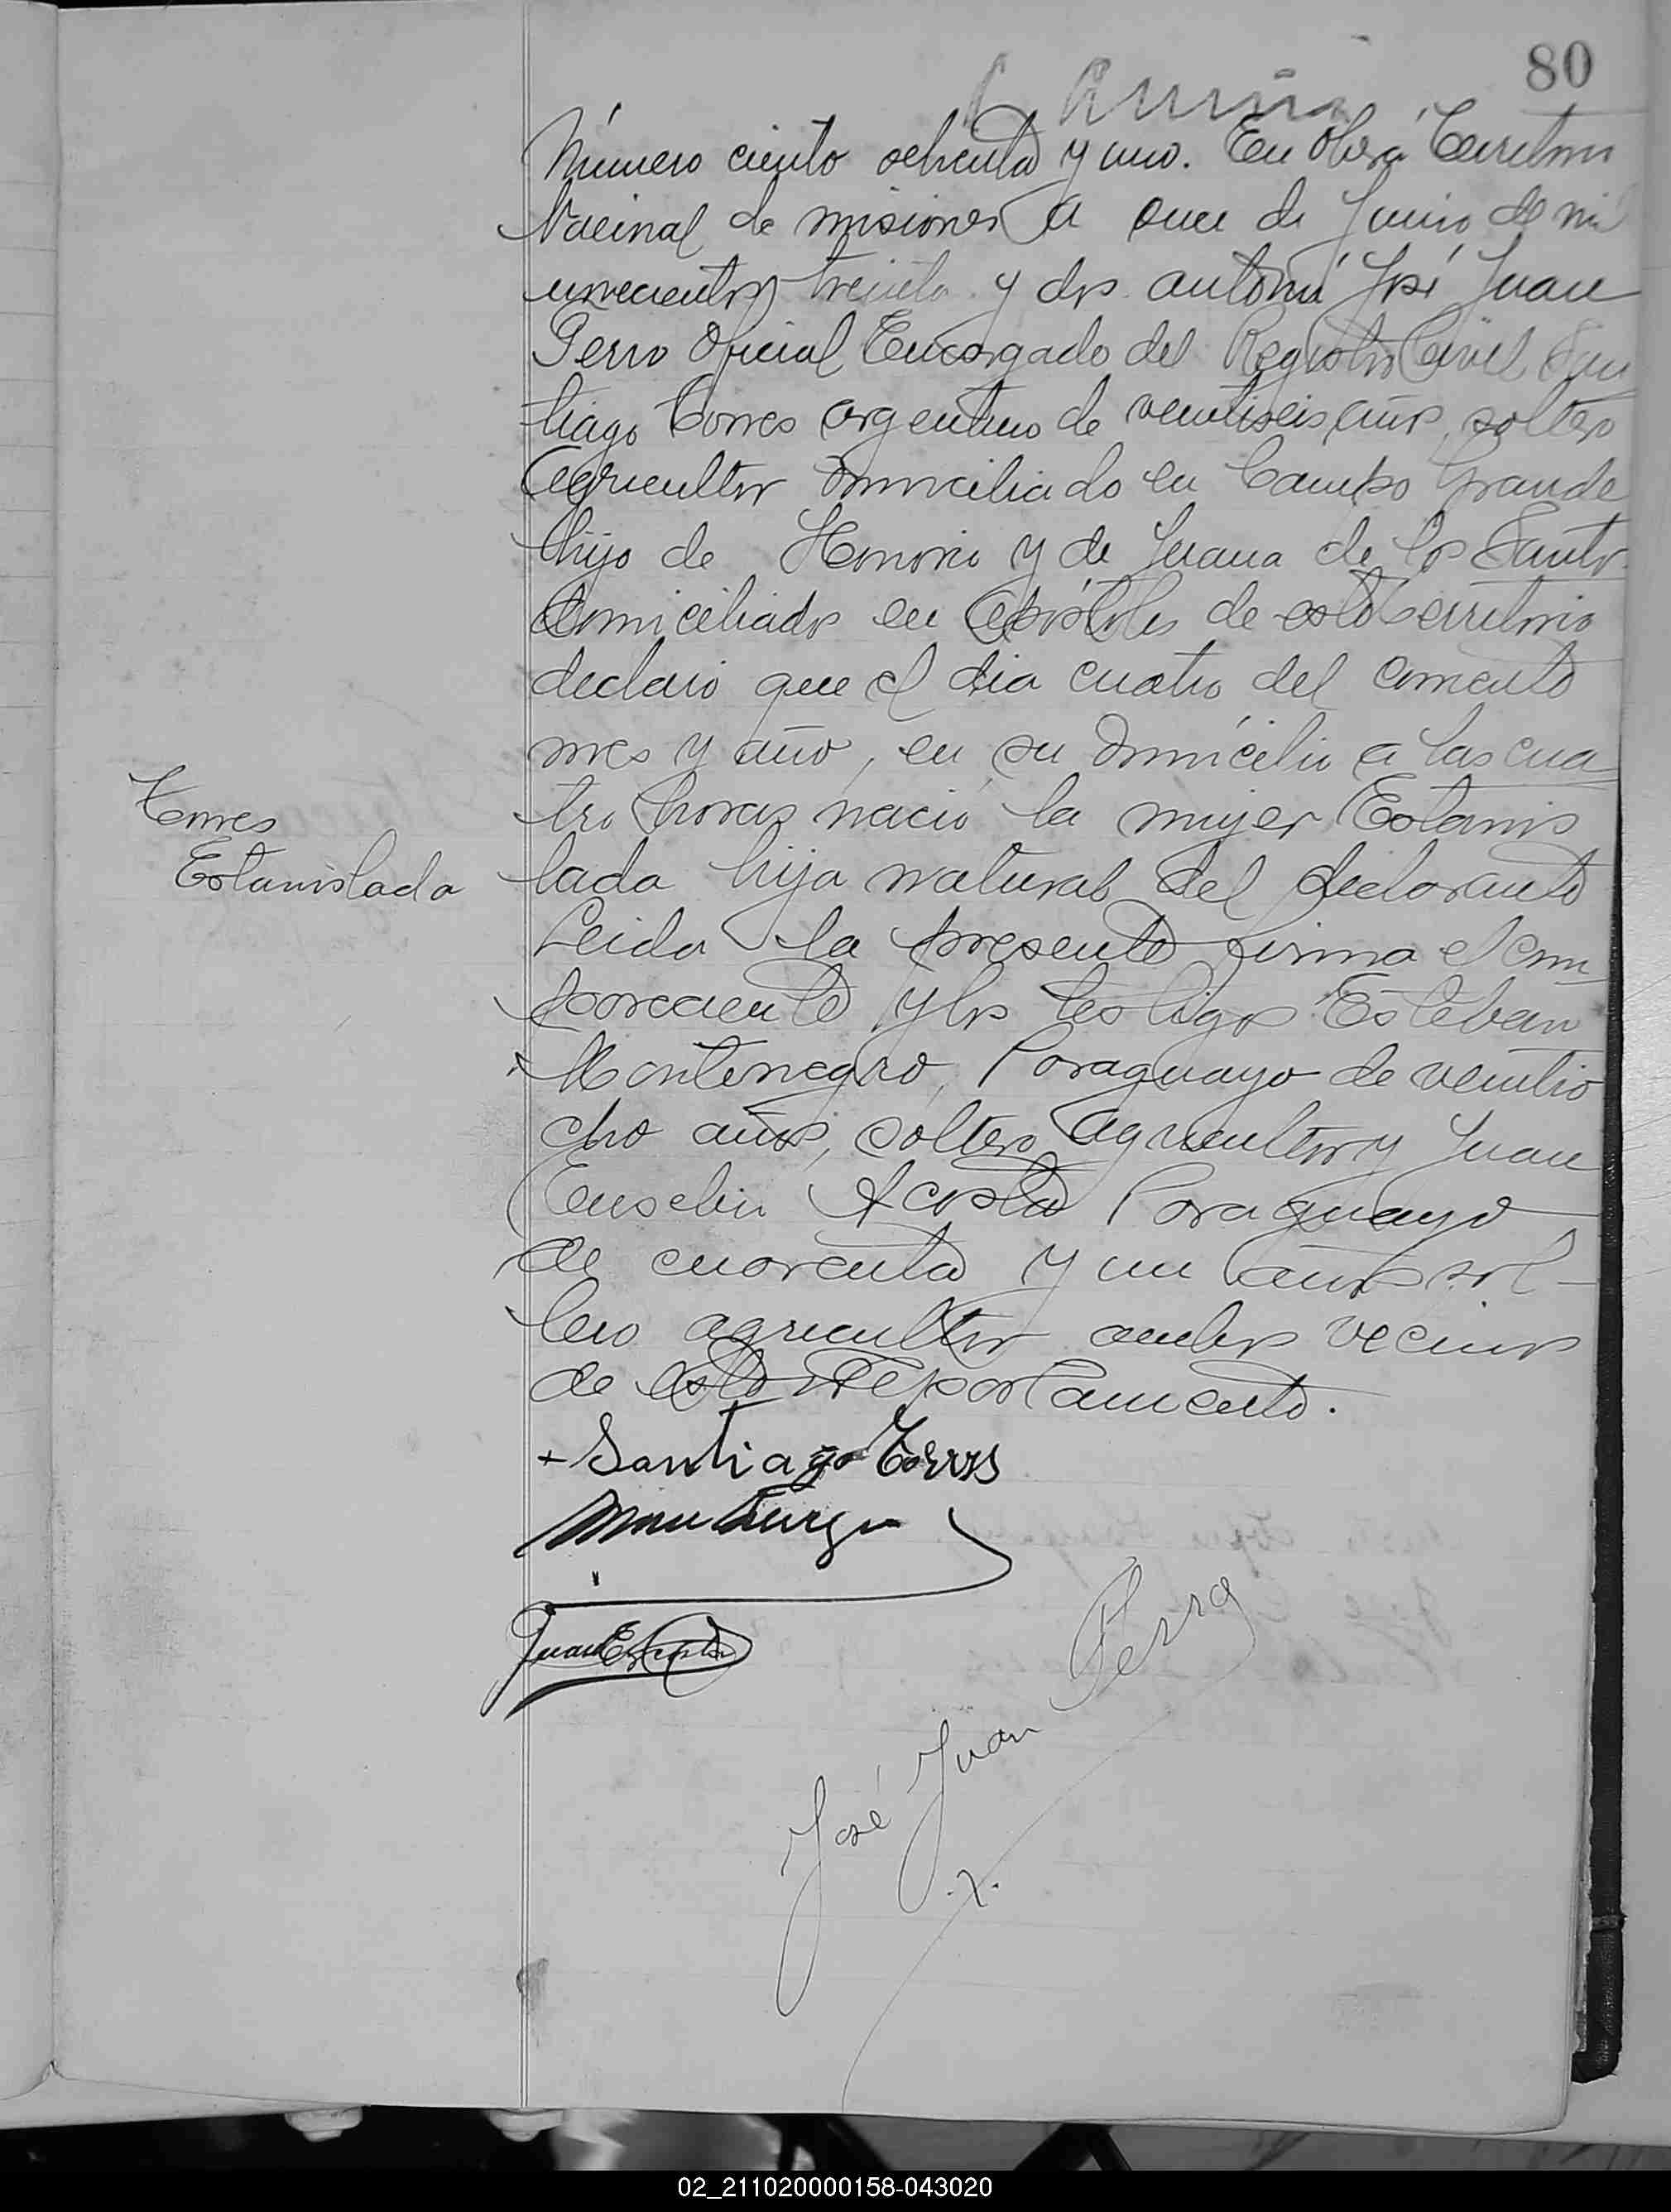 80
Número ciento ochenta y uno. En Oberá Territorio
Nacional de misiones a once de Junio de mil
novecientos treinta y dos ante mí José Juan
Perro Oficial Encargado del Registro Civil San
tiago Torres argentino de veintiseis años, soltero
agricultor domiciliado en Campo Grande
hijo de Honorio y de Juana de los Santos
domiciliados en Apóstoles de este territorio
declaró que el dia cuatro del corriente
mes y año, en su domicilio a las cua
tro horas nació la mujer Estanis
Torres
Estanislada
lada hija natural del declarante
Leida la presente firma el com
pareciente y los testigos Esteban
Montenegro, Paraguayo de veintio
cho años, soltero agricultor y Juan
Eusebio Acosta Paraguayo
de cuarenta y un años sol-
tero agricultor ambos vecinos
de este Departamento.
+ Santiago Torres
José Juan Perro
02_211020000158-043020